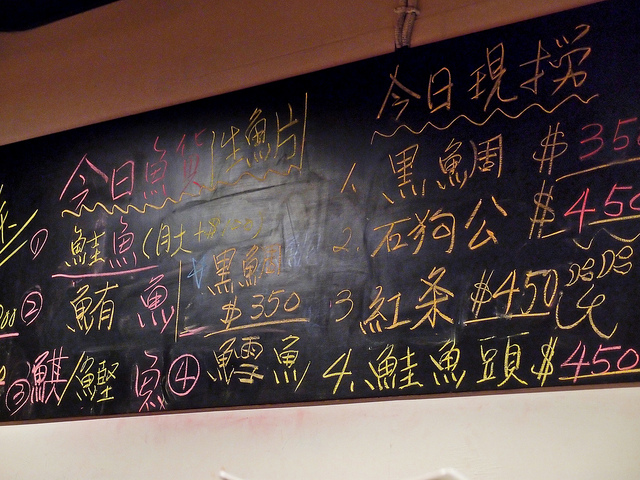 今日魚貨 生魚片
① 鮭魚(肚
② 鮪魚
黑鯛
$350
③ 鱰魚
④ 鱈魚
今日現撈
1. 黑魚周 $350
2. 石狗公 $450
3 紅条 $450
4. 鮭魚頭 $450